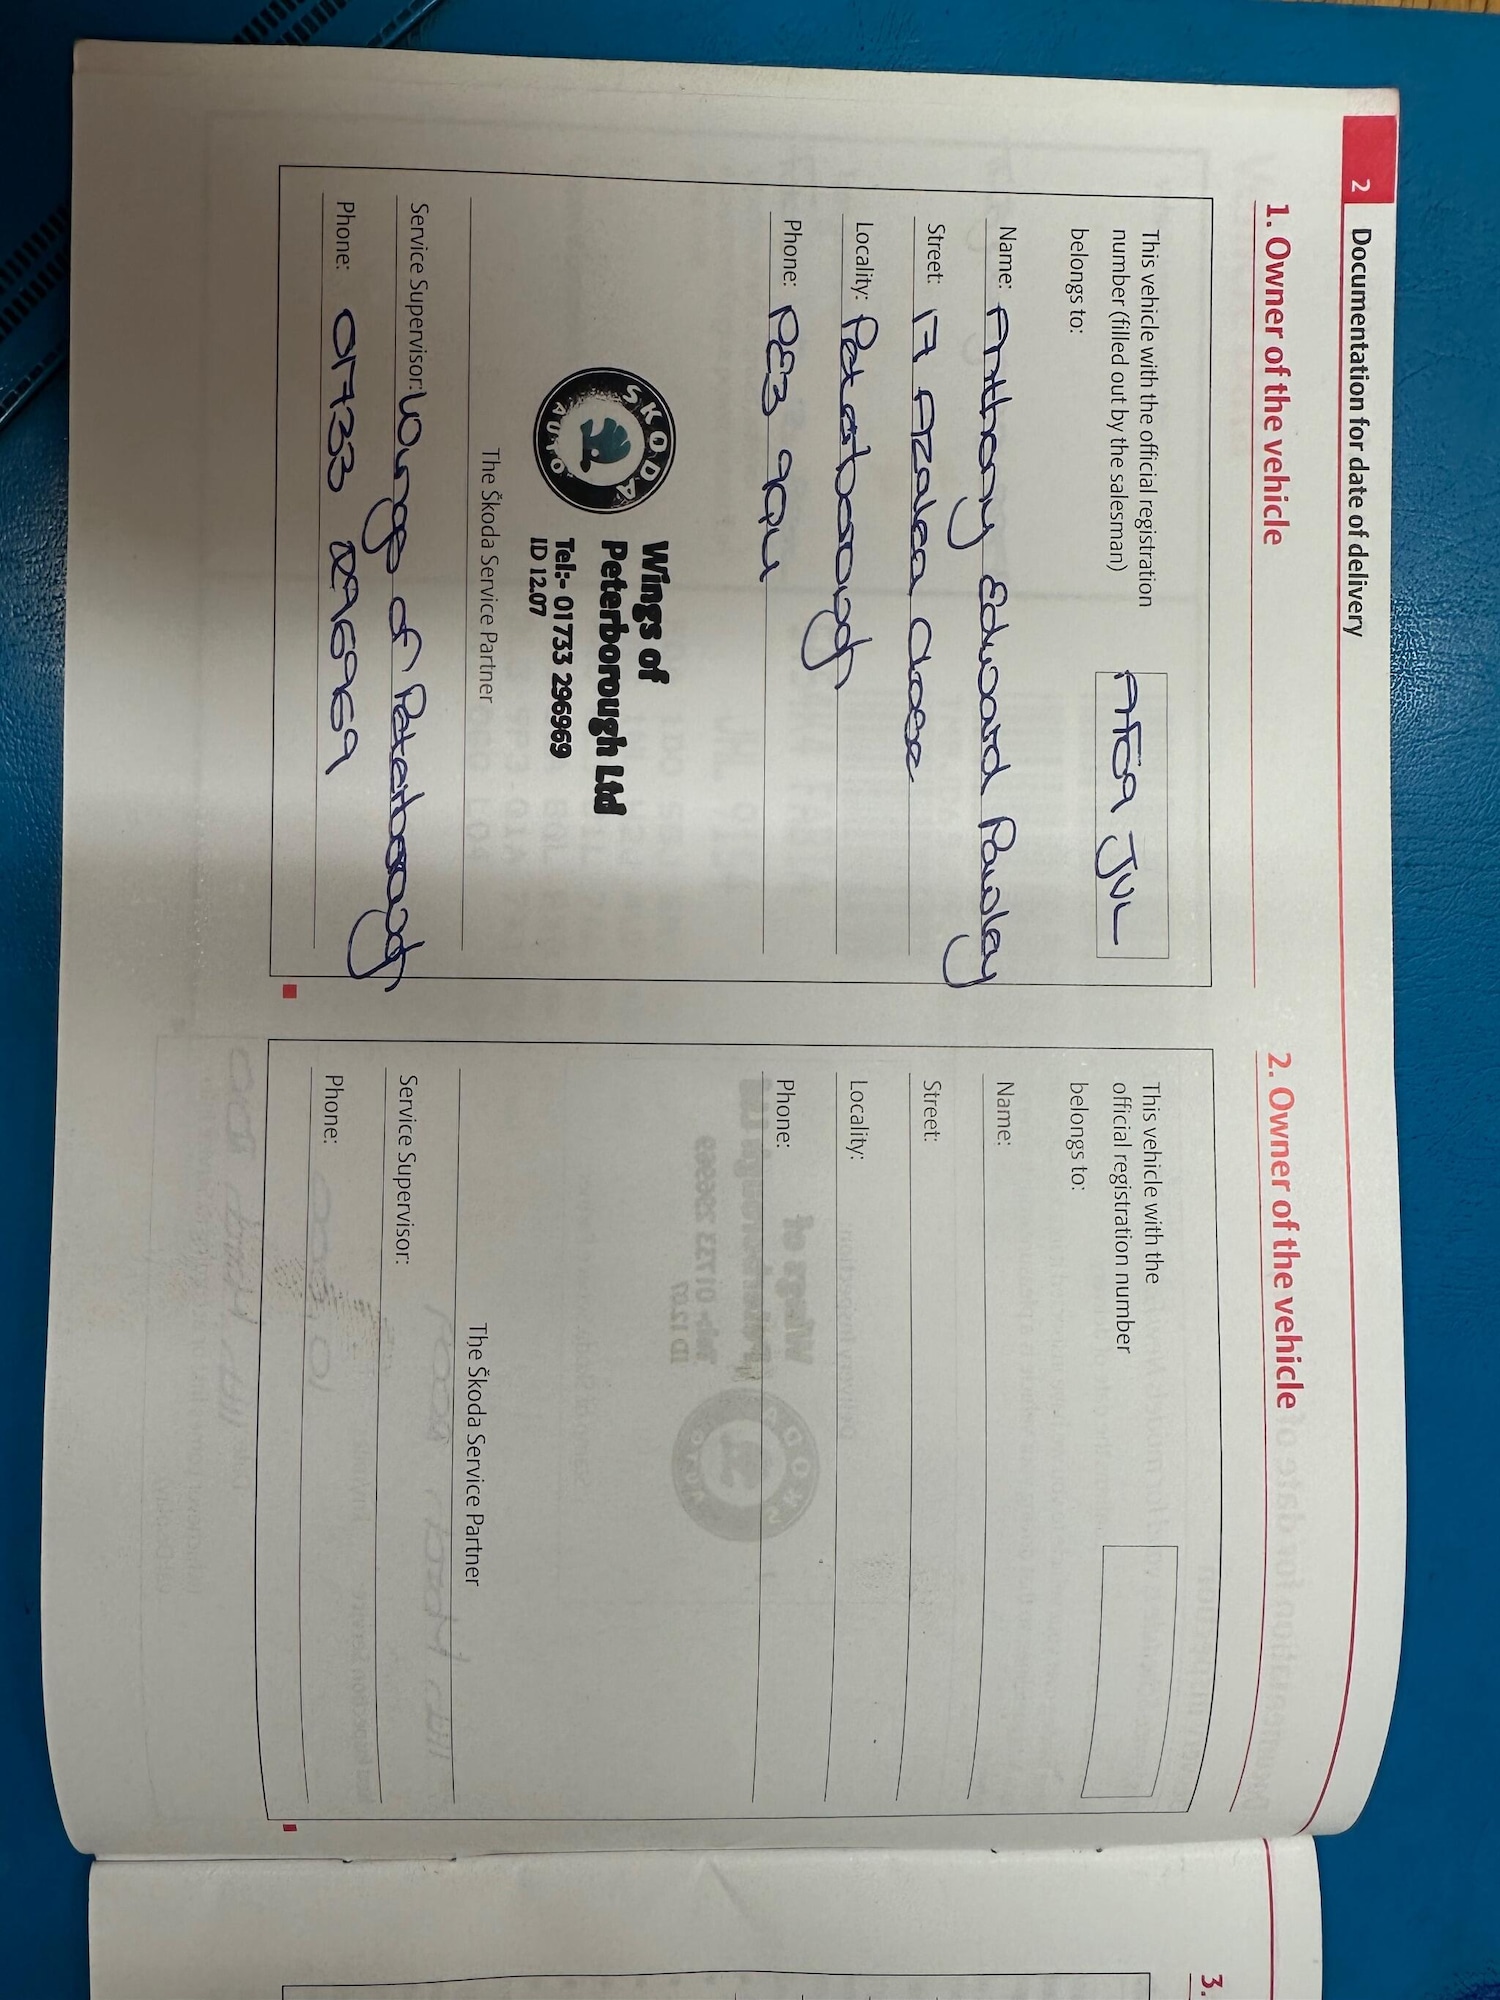 2 Documentation for date of delivery
1. Owner of the vehicle
This vehicle with the official registration
number (filled out by the salesman)
AF09 JVL
belongs to:
Name: Anthony Edward Pauley
Street: 17 Azalea Close
Locality: Peterborough
Phone: PE3 9QU
SKODA AUTO
Wings of
Peterborough Ltd
Tel:- 01733 296969
ID 12.07
The Škoda Service Partner
Service Supervisor: Wings of Peterborough
Phone: 01733 296969
2. Owner of the vehicle
This vehicle with the
official registration number
belongs to:
Name:
Street:
Locality:
Phone:
The Škoda Service Partner
Service Supervisor:
Phone:
3.